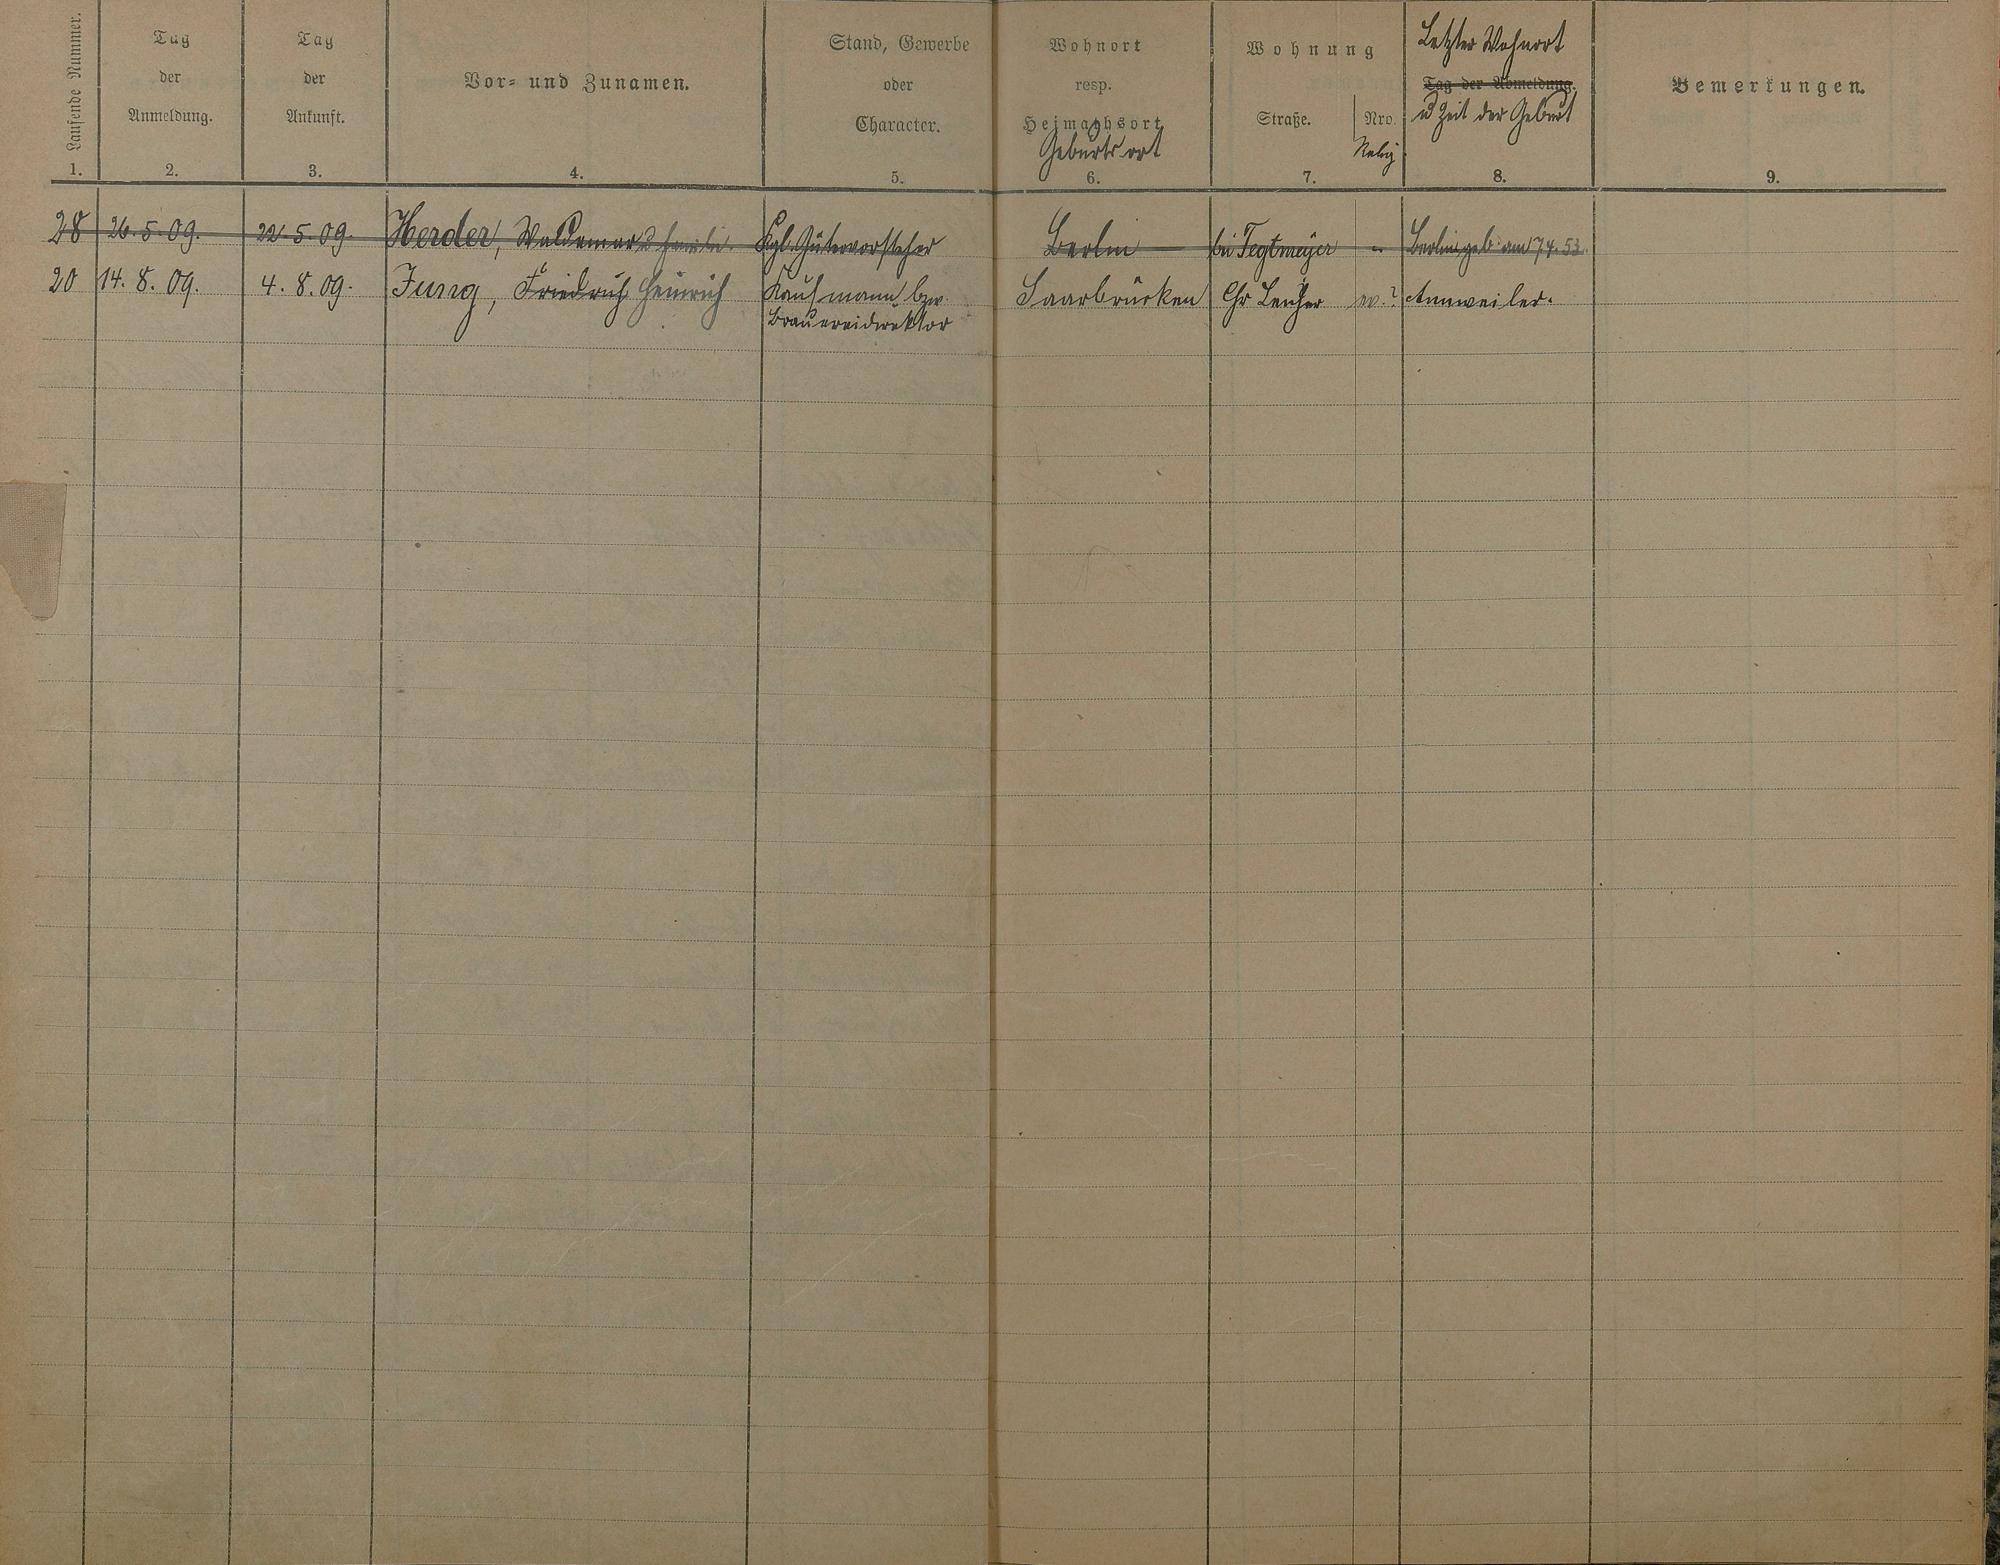 Laufende Nummer.
1.
Tag
der
Anmeldung.
2.
Tag
der
Ankunft.
3.
Vor- und Zunamen.
4.
Stand, Gewerbe
oder
Character.
5.
Wohnort
resp.
Heimathsort
Geburtsort
6.
Wohnung
Straße.
Nro.
Relig
7.
Letzter Wohnort
Tag der Abmeldung.
u Zeit der Geburt
8.
Bemerkungen.
9.
28 26.5.09. 22.5.09. Herder, Waldemar u Familie. Kgl. Gütervorsteher Berlin bei Tegtmeyer Berlin geb. am 17.4.53.
20 14.8.09. 4.8.09. Jung, Friedrich Heinrich Kaufmann bzw. Saarbrücken Chr ev.? Annweiler.
Brauereidirektor